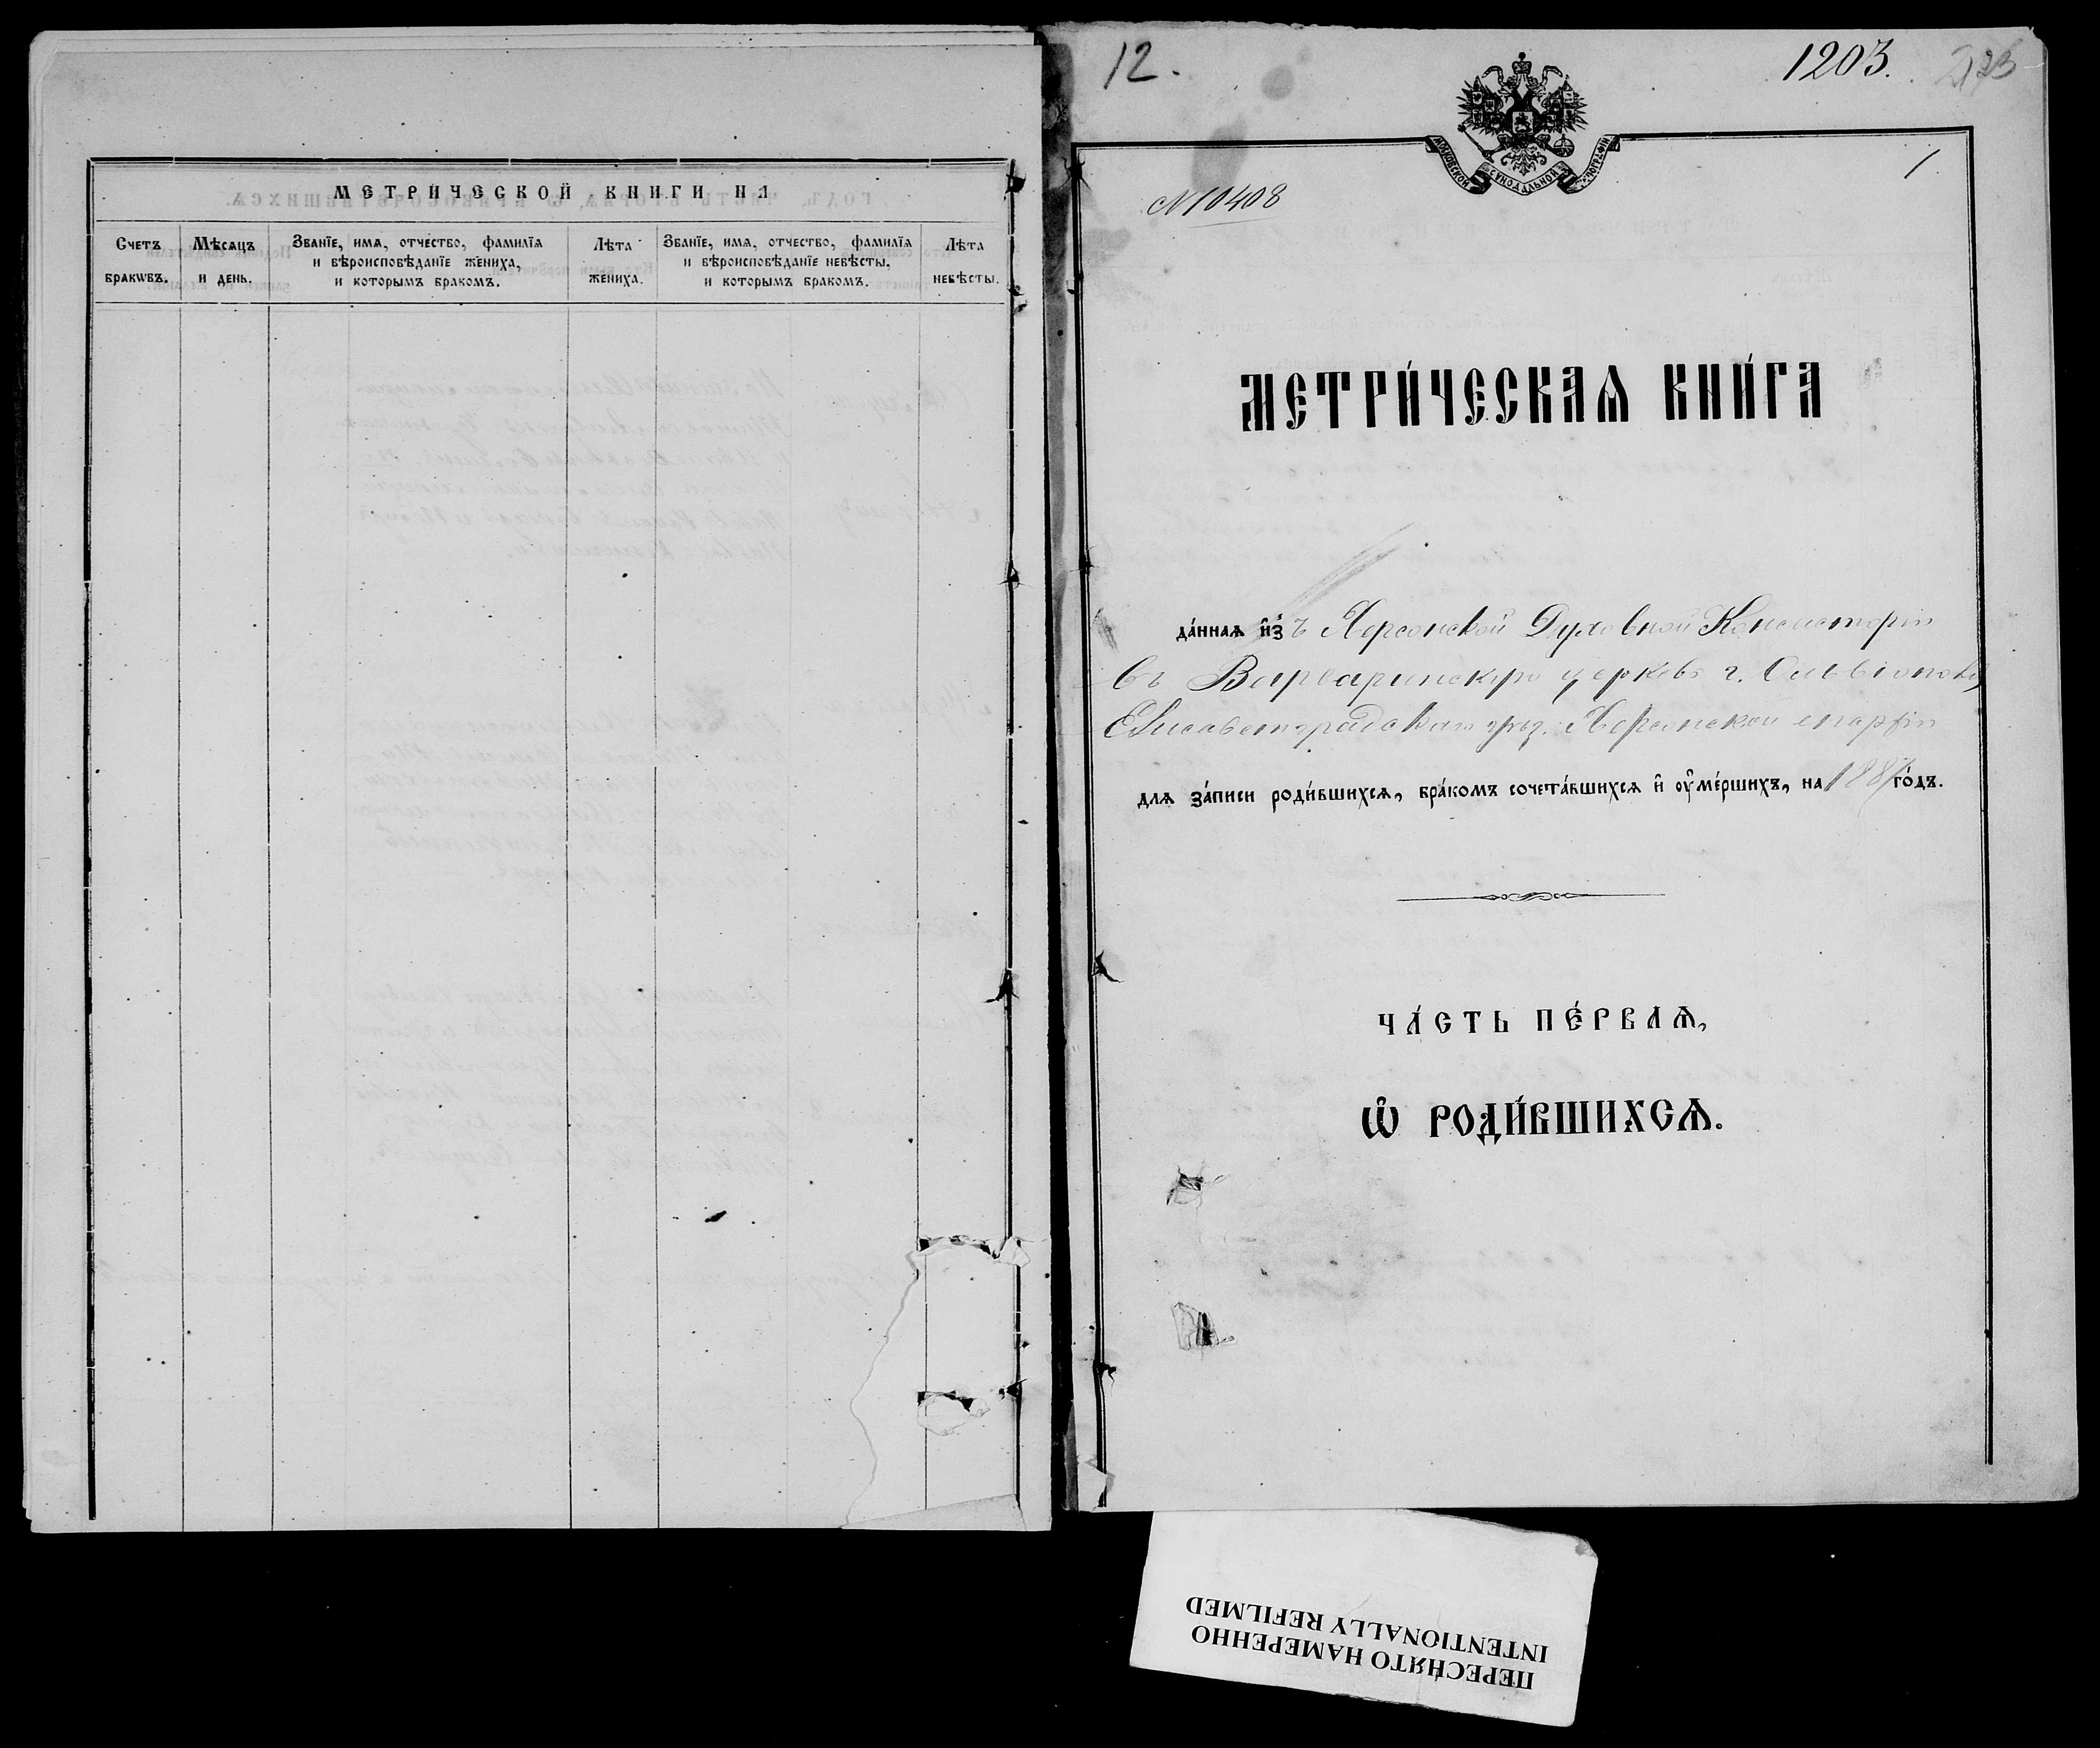 МЕТРИЧЕСКОЙ КНИГИ НА
Счетъ бракѡвъ.
Мѣсяцъ и день.
Званїе, имѧ, отчество, фамилїѧ
и вѣроисповѣданїе жениха,
и которымъ бракомъ.
Лѣта жениха.
Званїе, имѧ, отчество, фамилїѧ
и вѣроисповѣданїе невѣсты,
и которымъ бракомъ.
Лѣта невѣсты.
12.
1203.
МОСКОВСКОЙ СѴНОДАЛЬНОЙ ТИПОГРАФІИ
1
№ 10408
МЕТРИ́ЧЕСКАѦ КНИ́ГА
да́ннаѧ и҆зъ Херсонской Духовной Консисторіи
въ Варваринскую церковь г. Ольвіополя
Елисаветградскаго уѣз. Херсонской епархіи
длѧ за́писи роди́вшихсѧ, бра́комъ сочета́вшихсѧ и҆ оу҆ме́ршихъ, на 1887 го́дъ.
ЧА́СТЬ ПЕ́РВАѦ,
Ѡ҆ РОДИ́ВШИХСѦ.
ПЕРЕСНЯТО НАМЕРЕННО
INTENTIONALLY REFILMED